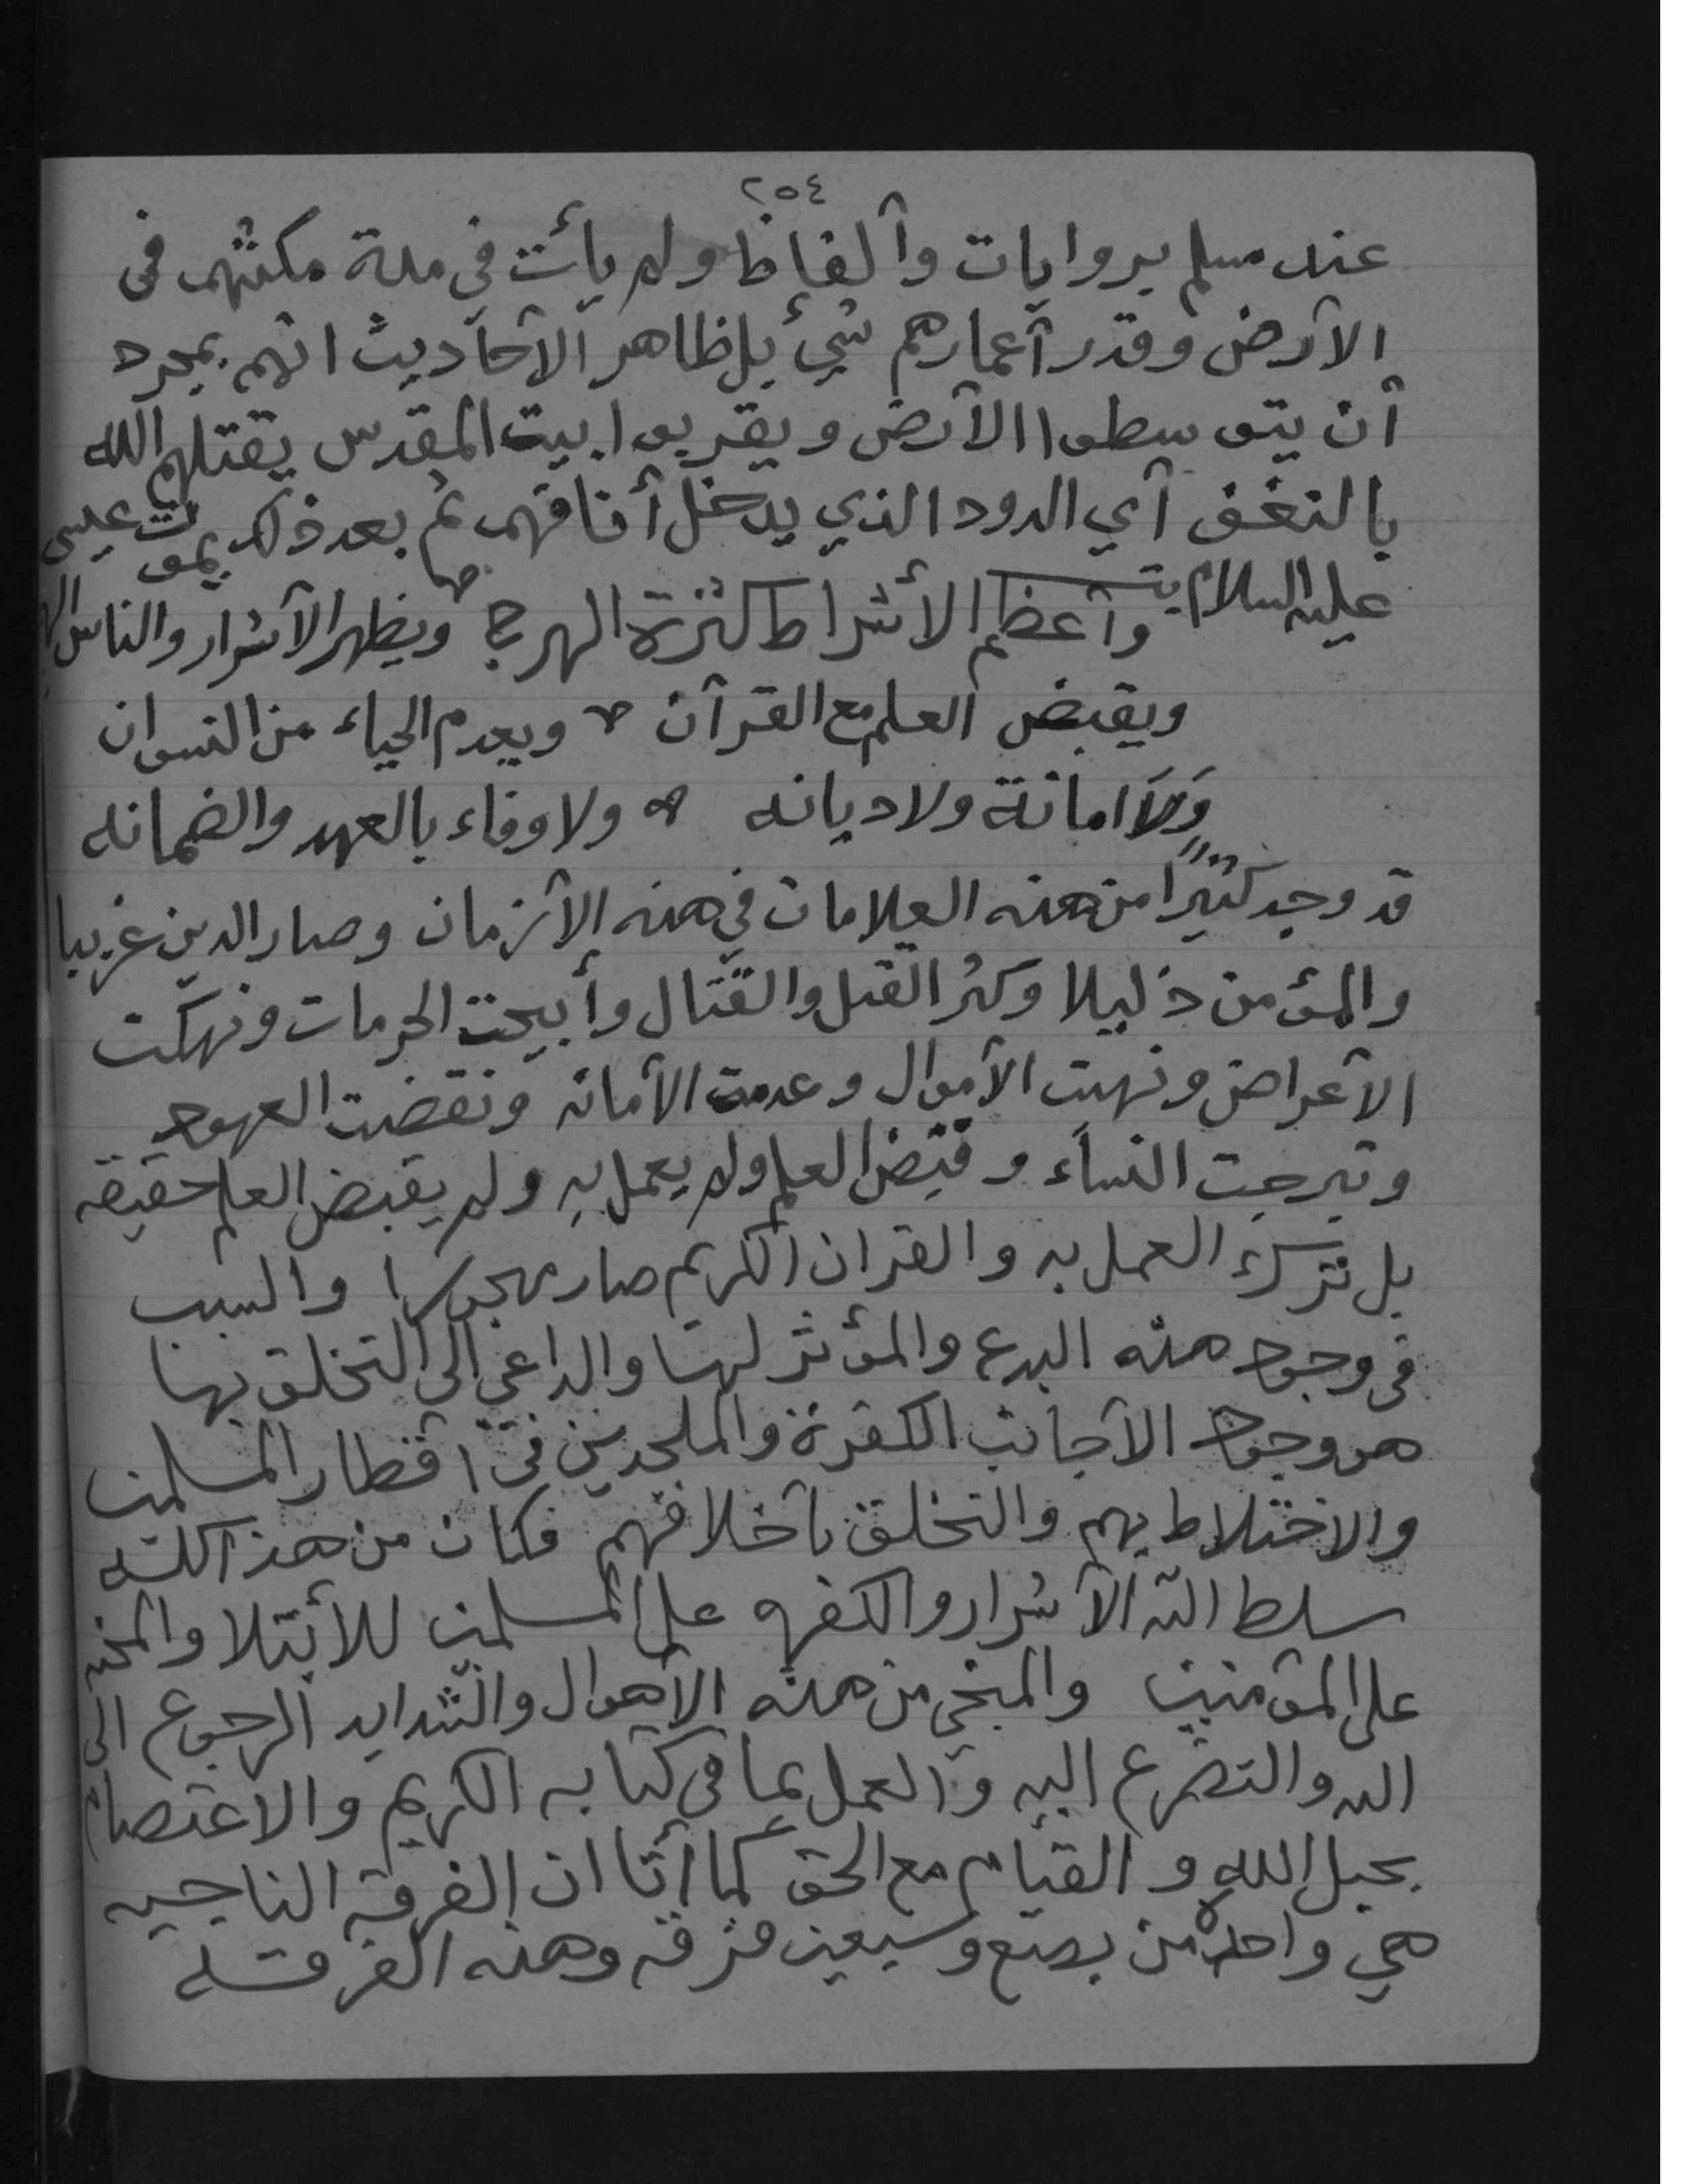 ٢٥٤
عند مسلم بروايات وألفاظ ولم يأت في مدة مكثهم في
الأرض وقدر أعمارهم شيء بل ظاهر الأحاديث انهم بمجرد
أن يتوسطوا الأرض ويقربوا بيت المقدس يقتلهم الله
بالنغف أي الدود الذي يدخل أنافهم ثم بعد ذلك يموت عيسى
عليه السلام وأعظم الأشراط كثرة الهرج ويظهر الأشرار والناس
ويقبض العلم مع القرآن ويعدم الحياء من النسوان
وَلَا امانة ولاديانه ولا وفاء بالعهد والضمانه
قد وجد كثيرًا من هذه العلامات في هذه الأزمان وصار الدين غريبا
والمؤمن ذليلا وكثر القتل والقتال وأبيحت الحرمات ونهكت
الأعراض ونهبت الأموال وعدمت الأمانه ونقضت العهود
وتبرجت النساء وقبض العلم ولم يعمل به ولم يقبض العلم حقيقه
بل ترك العمل به والقران الكريم صار مهجورا والسبب
في وجود هذه البدع والمؤثر لها والداعي الى التخلق بها
هو وجود الأجانب الكفرة والملحدين في اقطار المسلمين
والاختلاط بهم والتخلق بأخلاقهم فكان من هذا كله
سلط الله الأشرار والكفره على المسلمين للأبتلا والمحنه
على المؤمنين والمنجي من هذه الأهوال والشدايد الرجوع الى
الله والتضرع اليه والعمل بما في كتابه الكريم والاعتصام
بحبل الله والقيام مع الحق كما أتا ان الفرقه الناجيه
هي واحدة من بضع وسبعين فرقه وهذه الفرقة